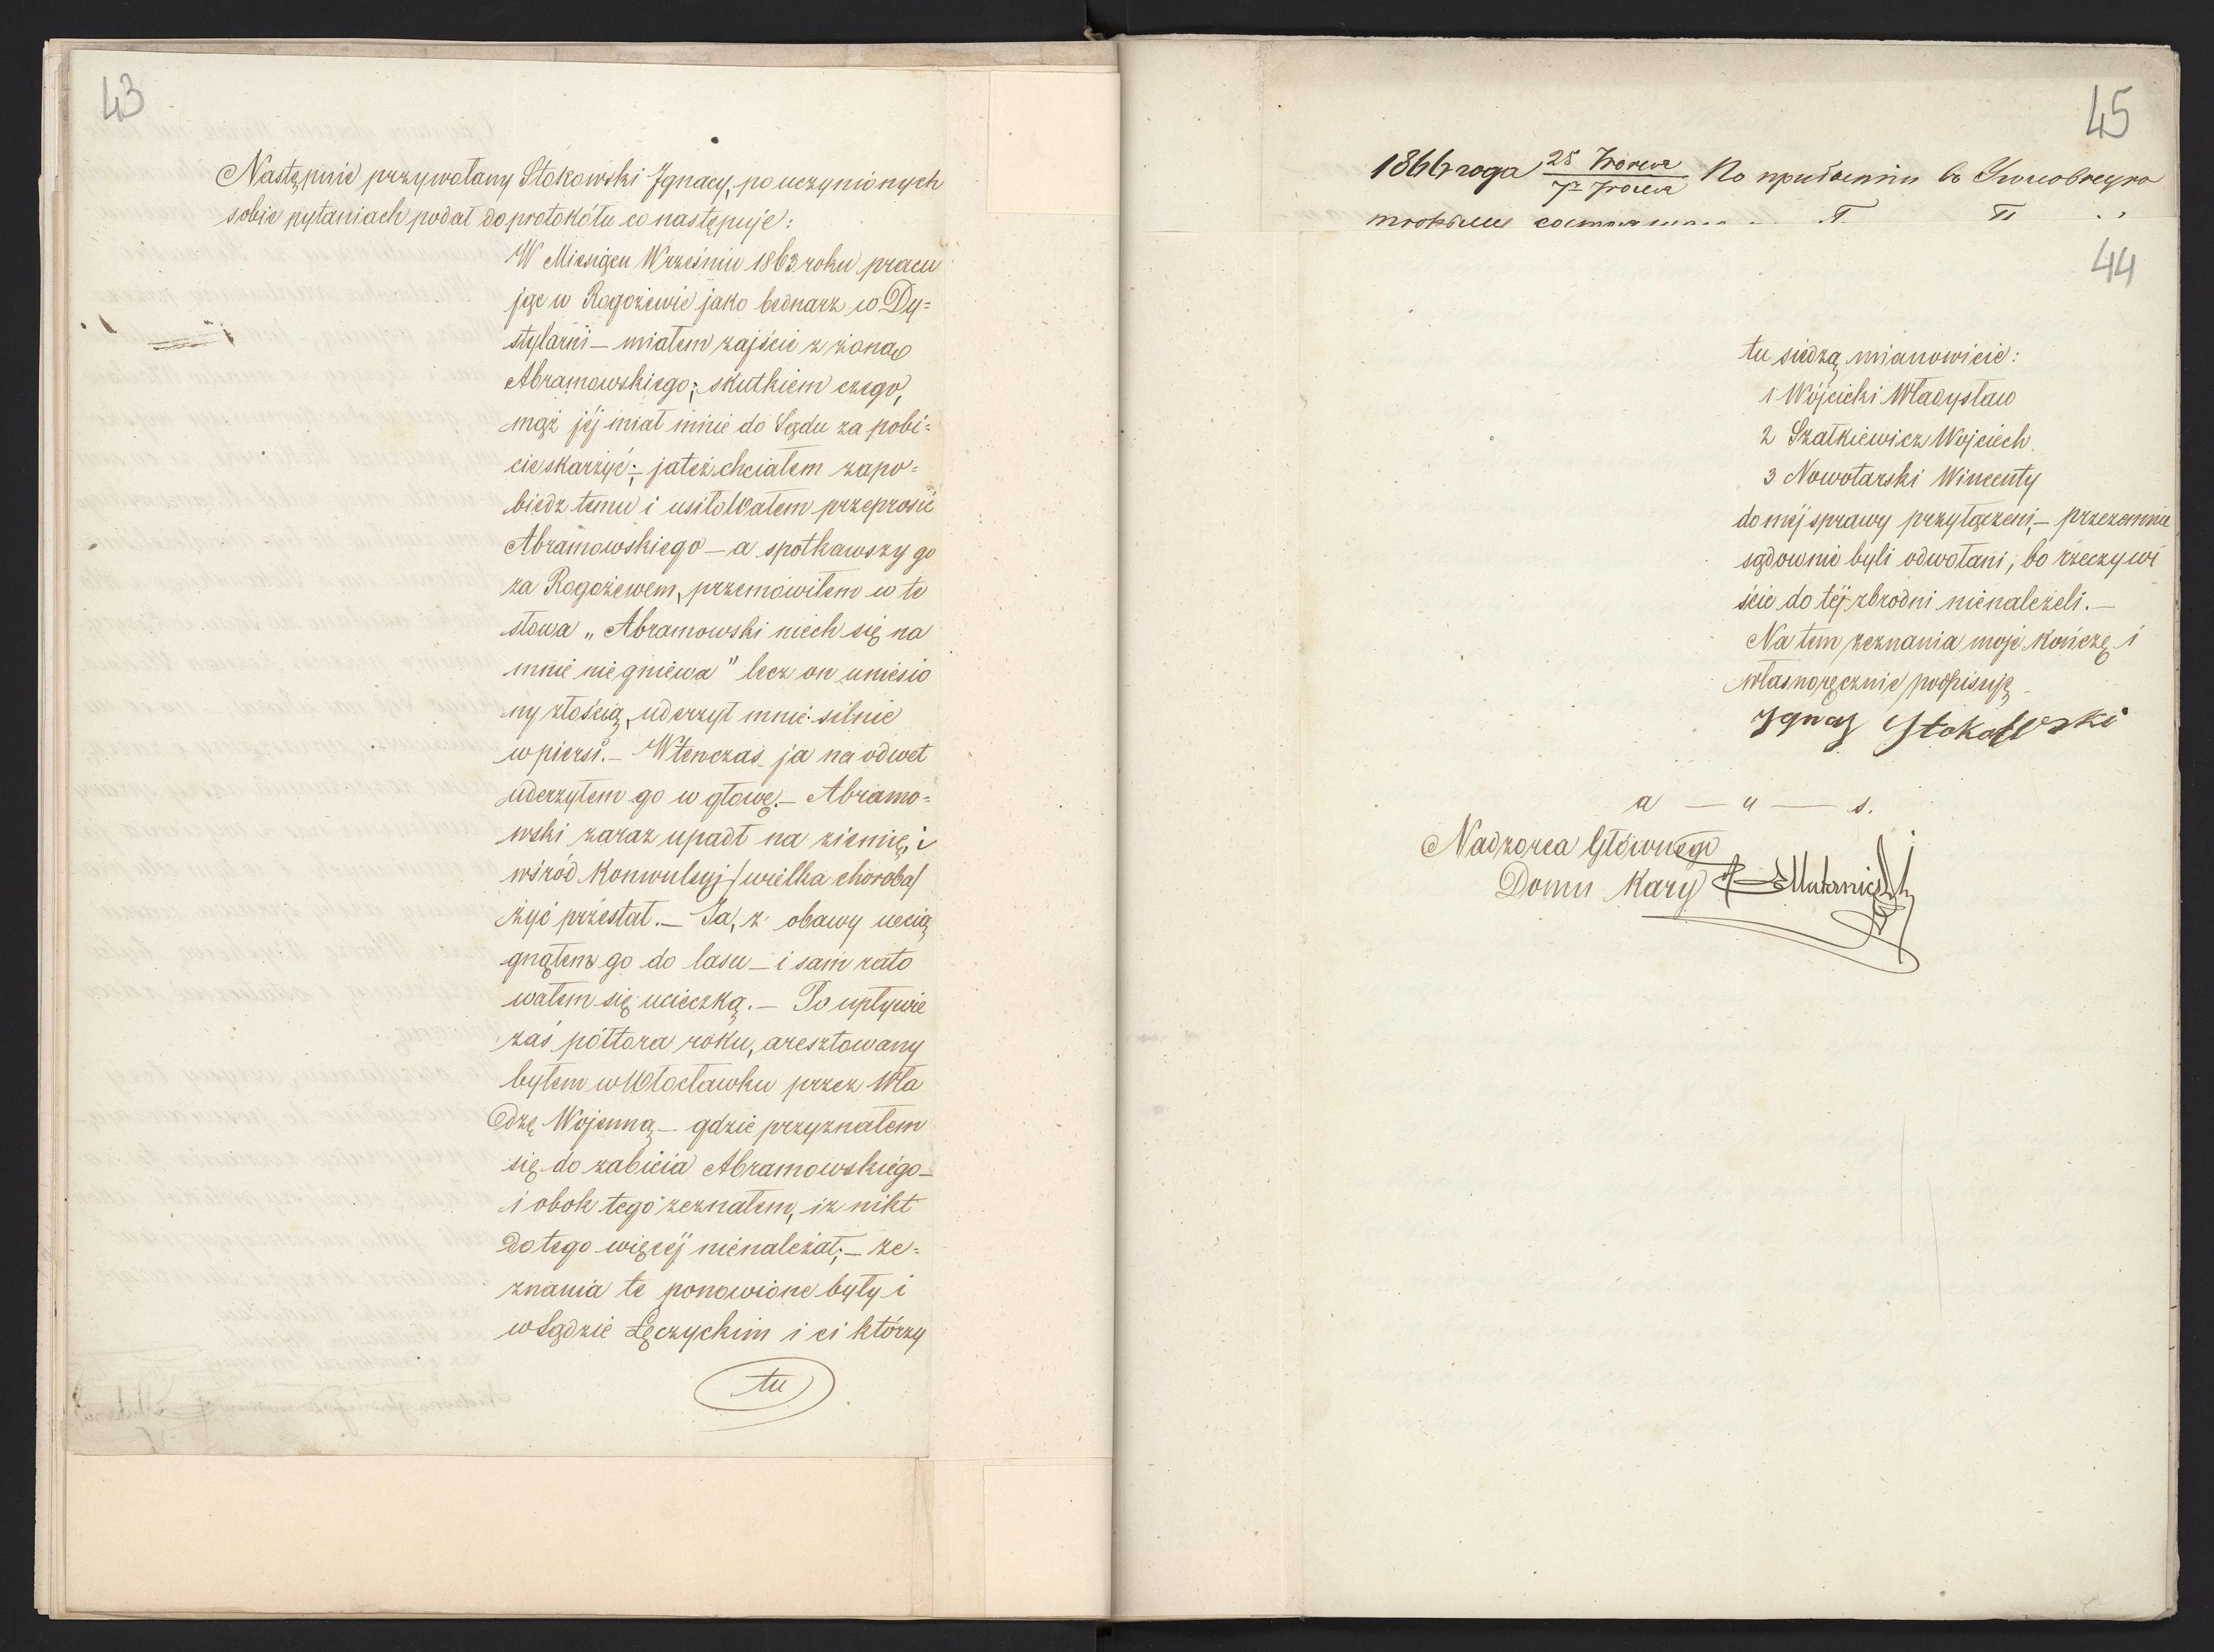 43
Następnie przywołany Stokowski Ignacy, po uczynionych
sobie pytaniach podał do protokółu co następuje:
W Miesiącu Wrześniu 1863 roku pracu
jąc w Rogożewie jako bednarz w Dy=
stylarni – miałem zajście z żoną
Abramowskiego; skutkiem czego,
mąż jéj miał mnie do Sądu za pobi=
cie skarżyć; – ja też chciałem zapo=
biedz temu i usiłowałem przeprosić
Abramowskiego – a spotkawszy go
za Rogożewem, przemówiłem w te
słowa „Abramowski niech się na
mnie nie gniewa" lecz on uniesio
ny złością, uderzył mnie silnie
w piersi. – Wtenczas ja na odwet
uderzyłem go w głowę. – Abramo=
wski zaraz upadł na ziemię, i
wśród Konwulsyj /wielka choroba/
żyć przestał. – Ja, z obawy ucią
gnąłem go do lasu – i sam rato
wałem się ucieczką. – Po upływie
zaś półtora roku, aresztowany
byłem w Włocławku przez Wła
dzę Wojenną – gdzie przyznałem
się do zabicia Abramowskiego –
i obok tego zeznałem, iż nikt
do tego więcéj nienależał; – ze=
znania te ponowione były i
w Sądzie Łęczyckim i ci którzy
tu
45
1866 года 25 / 7 По прибытии в
44
tu siedzą mianowicie:
1 Wójcicki Władysław
2 Szałkiewicz Wojciech
3 Nowotarski Wincenty
do méj sprawy przyłączeni, – przezemnie
sądownie byli odwołani, bo rzeczywi
ście do téj zbrodni nienależeli. –
Na tem zeznania moje kończę i
własnoręcznie podpisuję
Ignacy Stokowski
a – u – s.
Nadzorca Głównego
Domu Kary